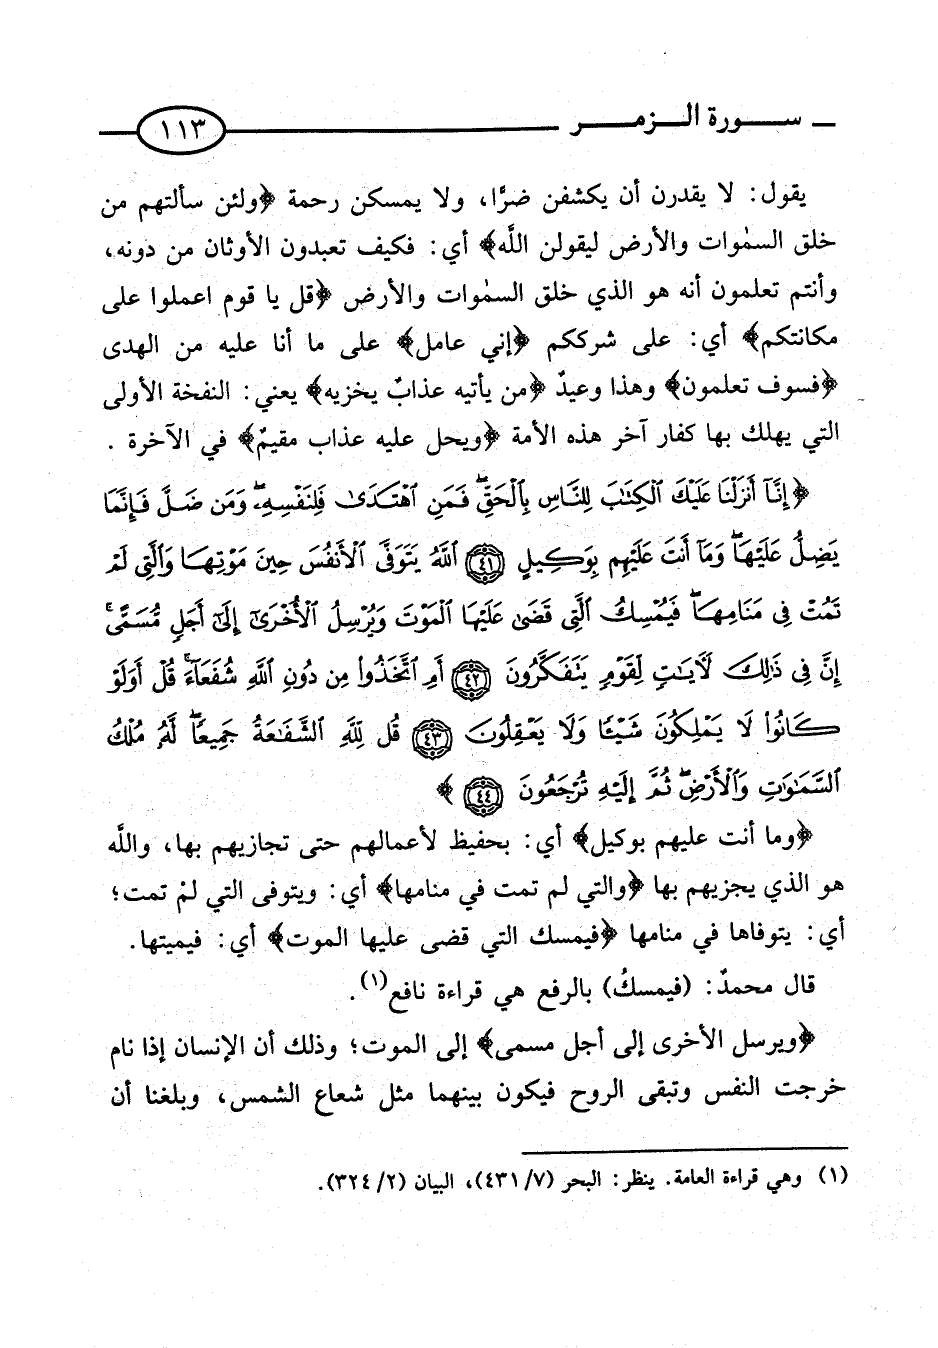 سورة الزمر ١١٣
يقول: لا يقدرن أن يكشفن ضرًّا، ولا يمسكن رحمة ﴿ولئن سألتهم من
خلق السمٰوات والأرض ليقولن اللَّه﴾ أي: فكيف تعبدون الأوثان من دونه،
وأنتم تعلمون أنه هو الذي خلق السمٰوات والأرض ﴿قل يا قوم اعملوا على
مكانتكم﴾ أي: على شرككم ﴿إني عامل﴾ على ما أنا عليه من الهدى
﴿فسوف تعلمون﴾ وهذا وعيدٌ ﴿من يأتيه عذابٌ يخزيه﴾ يعني: النفخة الأولى
التي يهلك بها كفار آخر هذه الأمة ﴿ويحل عليه عذاب مقيمٌ﴾ في الآخرة .
﴿إِنَّآ أَنزَلْنَا عَلَيْكَ ٱلْكِتَٰبَ لِلنَّاسِ بِٱلْحَقِّۖ فَمَنِ ٱهْتَدَىٰ فَلِنَفْسِهِۦۖ وَمَن ضَلَّ فَإِنَّمَا
يَضِلُّ عَلَيْهَاۖ وَمَآ أَنتَ عَلَيْهِم بِوَكِيلٍ ٤١ ٱللَّهُ يَتَوَفَّى ٱلْأَنفُسَ حِينَ مَوْتِهَا وَٱلَّتِى لَمْ
تَمُتْ فِى مَنَامِهَاۖ فَيُمْسِكُ ٱلَّتِى قَضَىٰ عَلَيْهَا ٱلْمَوْتَ وَيُرْسِلُ ٱلْأُخْرَىٰٓ إِلَىٰٓ أَجَلٍ مُّسَمًّىۚ
إِنَّ فِى ذَٰلِكَ لَءَايَٰتٍ لِّقَوْمٍ يَتَفَكَّرُونَ ٤٢ أَمِ ٱتَّخَذُوا۟ مِن دُونِ ٱللَّهِ شُفَعَآءَۚ قُلْ أَوَلَوْ
كَانُوا۟ لَا يَمْلِكُونَ شَيْـًٔا وَلَا يَعْقِلُونَ ٤٣ قُل لِّلَّهِ ٱلشَّفَٰعَةُ جَمِيعًاۖ لَّهُۥ مُلْكُ
ٱلسَّمَٰوَٰتِ وَٱلْأَرْضِۖ ثُمَّ إِلَيْهِ تُرْجَعُونَ ٤٤ ﴾
﴿وما أنت عليهم بوكيل﴾ أي: بحفيظ لأعمالهم حتى تجازيهم بها، واللَّه
هو الذي يجزيهم بها ﴿والتي لم تمت في منامها﴾ أي: ويتوفى التي لمْ تمت؛
أي: يتوفاها في منامها ﴿فيمسك التي قضى عليها الموت﴾ أي: فيميتها.
قال محمدٌ: (فيمسكُ) بالرفع هي قراءة نافع(١).
﴿ويرسل الأخرى إلى أجل مسمى﴾ إلى الموت؛ وذلك أن الإنسان إذا نام
خرجت النفس وتبقى الروح فيكون بينهما مثل شعاع الشمس، وبلغنا أن
(١) وهي قراءة العامة. ينظر: البحر (٤٣١/٧)، البيان (٣٢٤/٢).